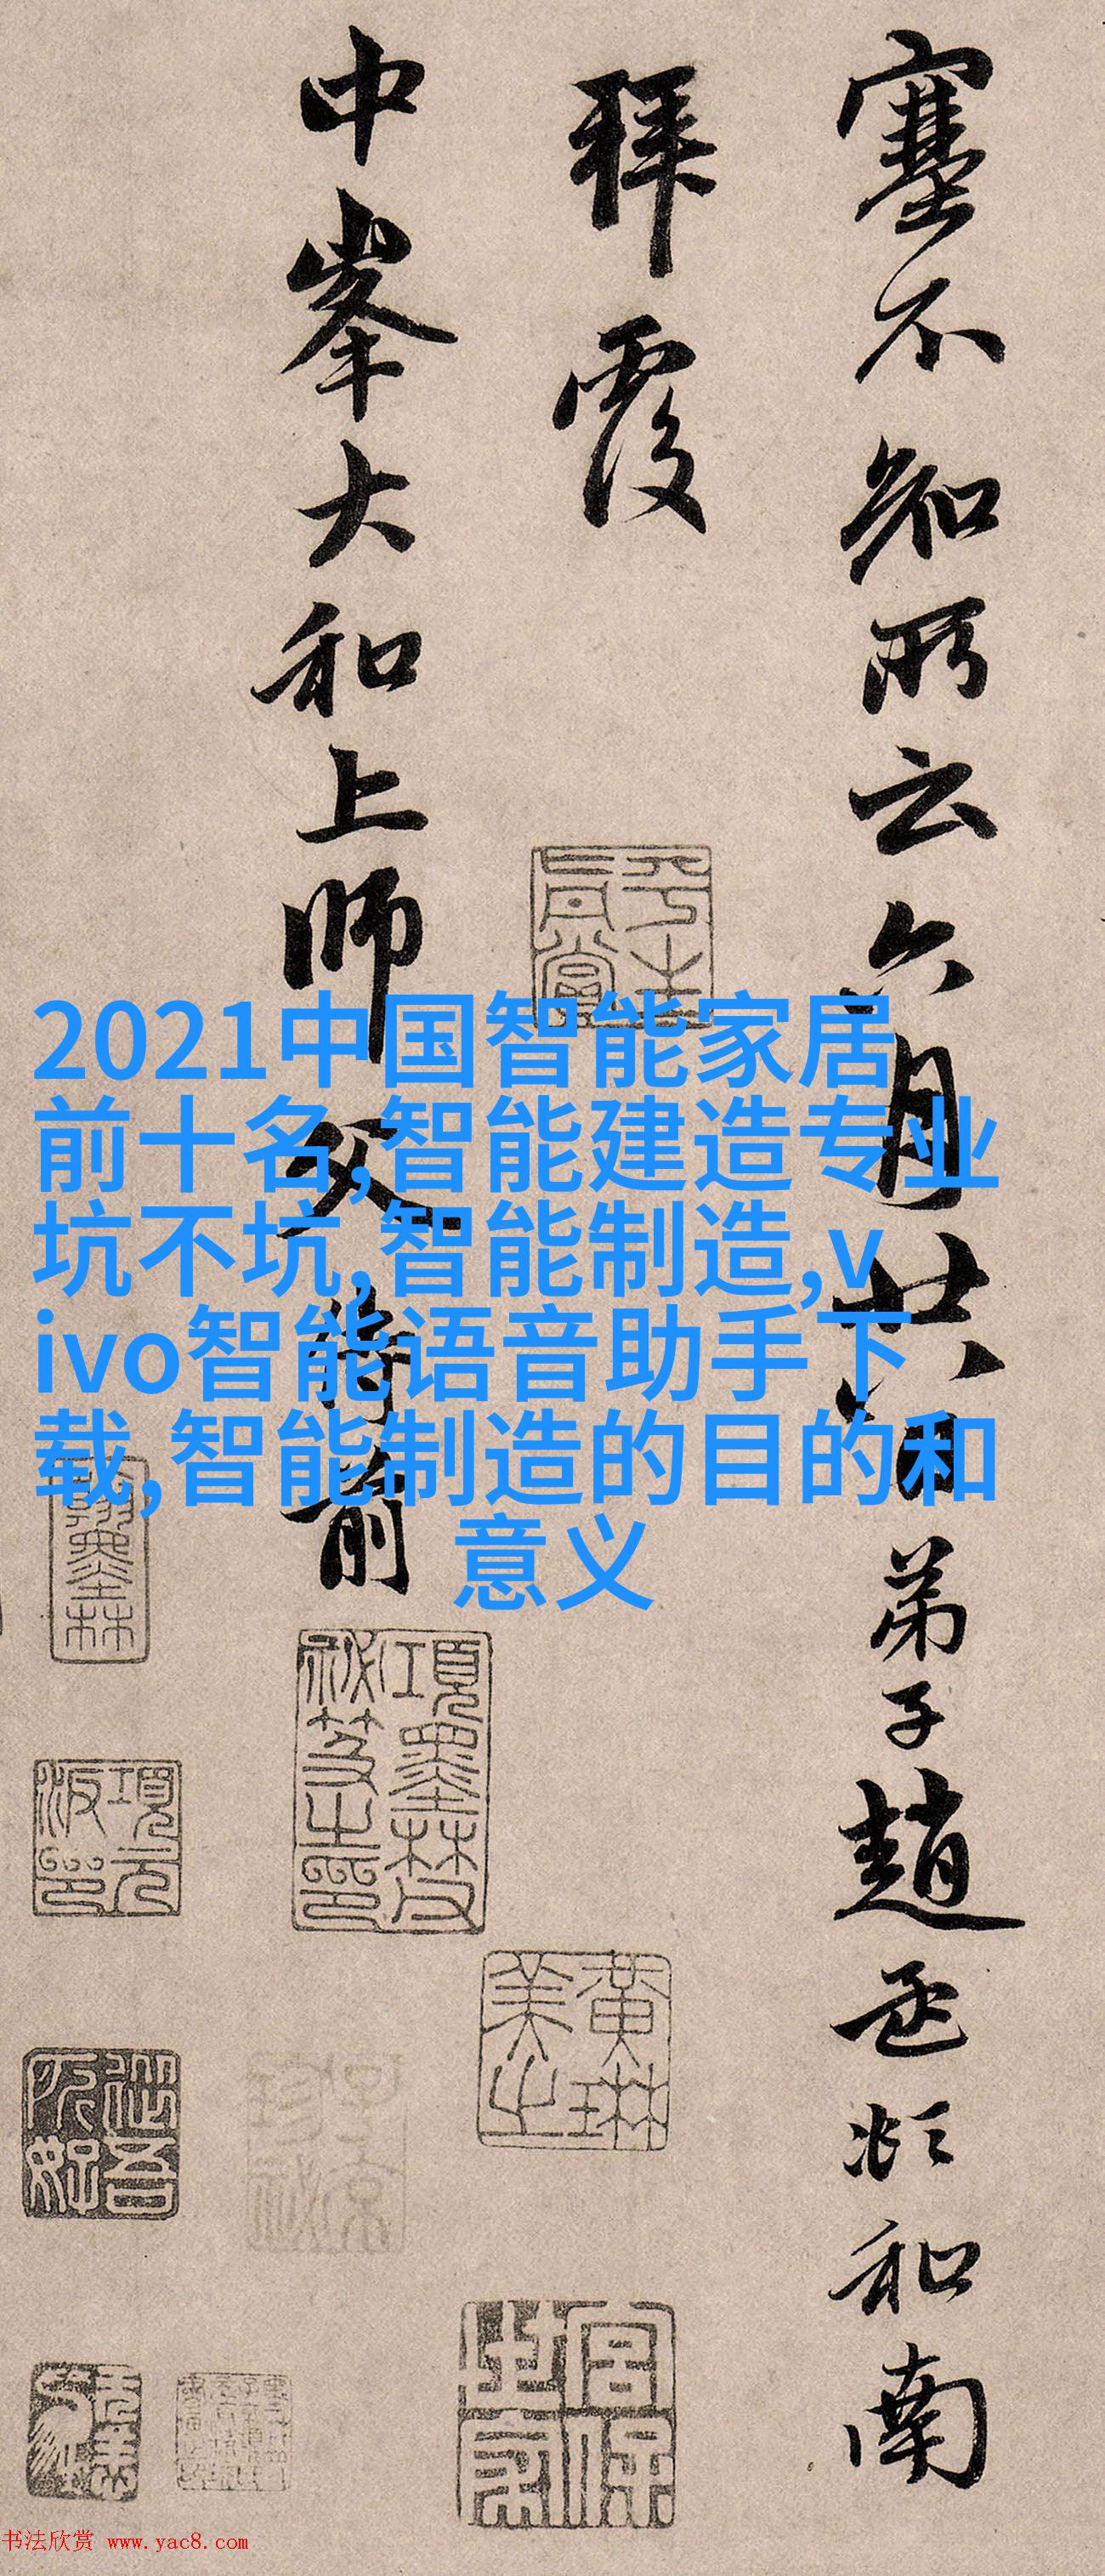 塞不知所云六月廿八日弟子趙孟頫和南
拜覆
中峯大和上師父侍前
2021中国智能家居
前十名,智能建造专业
坑不坑,智能制造,v
ivo智能语音助手下
载,智能制造的目的和
意义
項墨林父
祕笈之印
黄琳
美之
书法欣赏 www.yac8.com